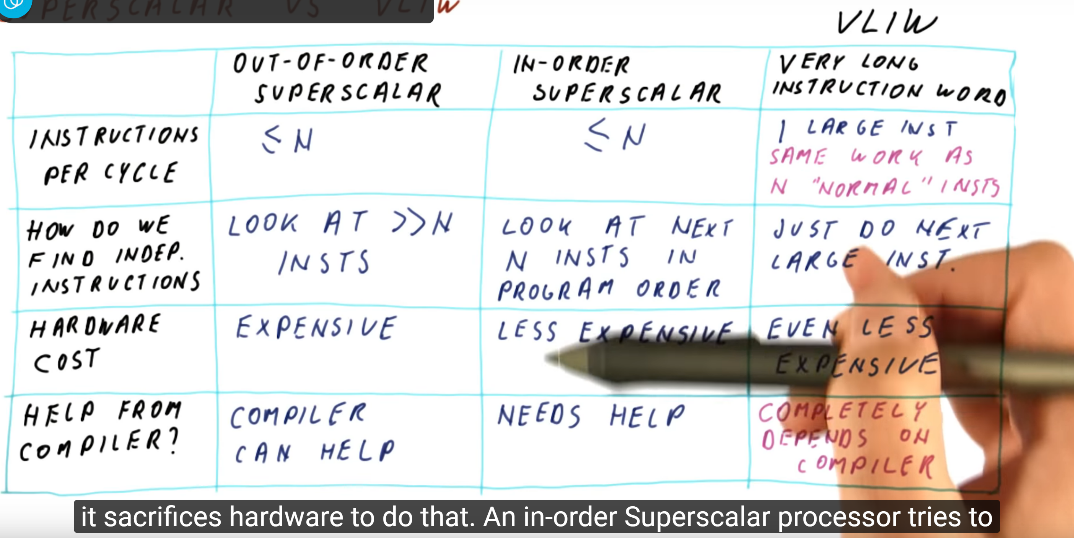 PERSCALAR VS VLIW
VLIW
OUT-OF-ORDER
SUPERSCALAR
IN-ORDER
SUPERSCALAR
VERY LONG
INSTRUCTION WORD
INSTRUCTIONS
PER CYCLE
≤ N
≤ N
1 LARGE INST
SAME WORK AS
N "NORMAL" INSTS
HOW DO WE
FIND INDEP.
INSTRUCTIONS
LOOK AT >>N
INSTS
LOOK AT NEXT
N INSTS IN
PROGRAM ORDER
JUST DO NEXT
LARGE INST.
HARDWARE
COST
EXPENSIVE
LESS EXPENSIVE
EVEN LESS
EXPENSIVE
HELP FROM
COMPILER?
COMPILER
CAN HELP
NEEDS HELP
COMPLETELY
DEPENDS ON
COMPILER
it sacrifices hardware to do that. An in-order Superscalar processor tries to